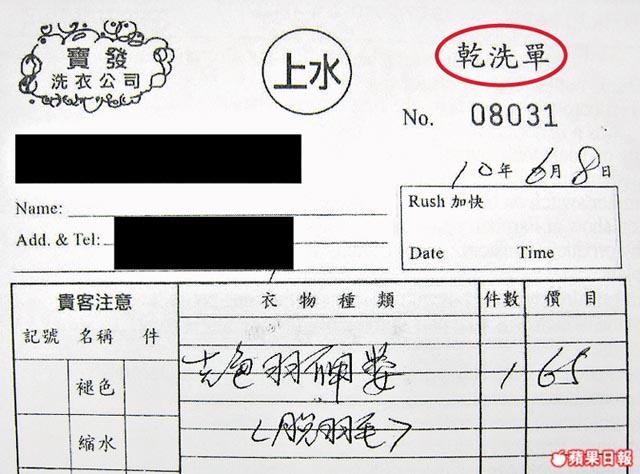 寶發
洗衣公司
上水
乾洗單
No. 08031
10年6月8日
Name:
Add. & Tel:
Rush 加快
Date Time
貴客注意 衣物種類 件數 價目
記號 名稱 件
褪色
1 65
縮水
(脫羽毛)
蘋果日報